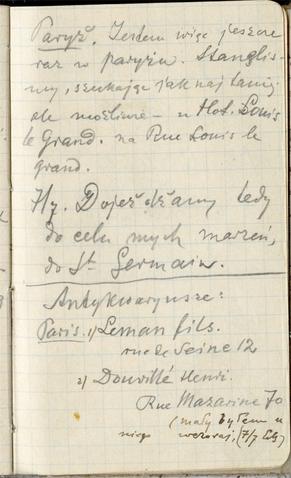 Paryż. Jestem więc jeszcze
raz w paryżu. Stanęliś-
my, szukając jak naj taniej
ale możliwie – u Hot. Louis
le Grand. na Rue Louis le
grand.
7/7. Dojeżdżamy tedy
do celu mych marzeń,
do St Germain.
Antykwaryusze:
Paris. 1) Leman fils.
rue de Seine 12
2) Douvillé Henri.
Rue Mazarine 70
(mały byłem u
niego wczoraj, (7/7